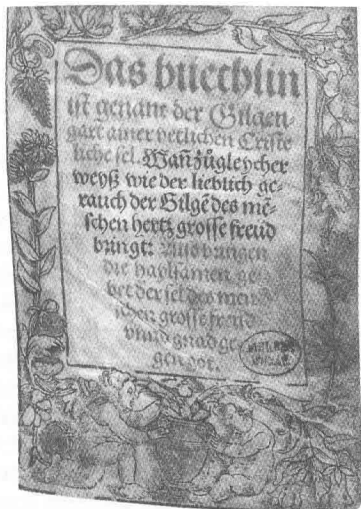 Das buechlin
ist genant der Gilgen-
gart ainer yetlichen Criste
liche sel. Wañ zůgleycher
weyß wie der lieblich ge-
rauch der Gilgẽ des mẽ-
schen hertz grosse freud
bringt: Also bringen
die haylsamen ge-
bet der sel des men
schen grosse freud
vnnd gnad ge-
gen got.